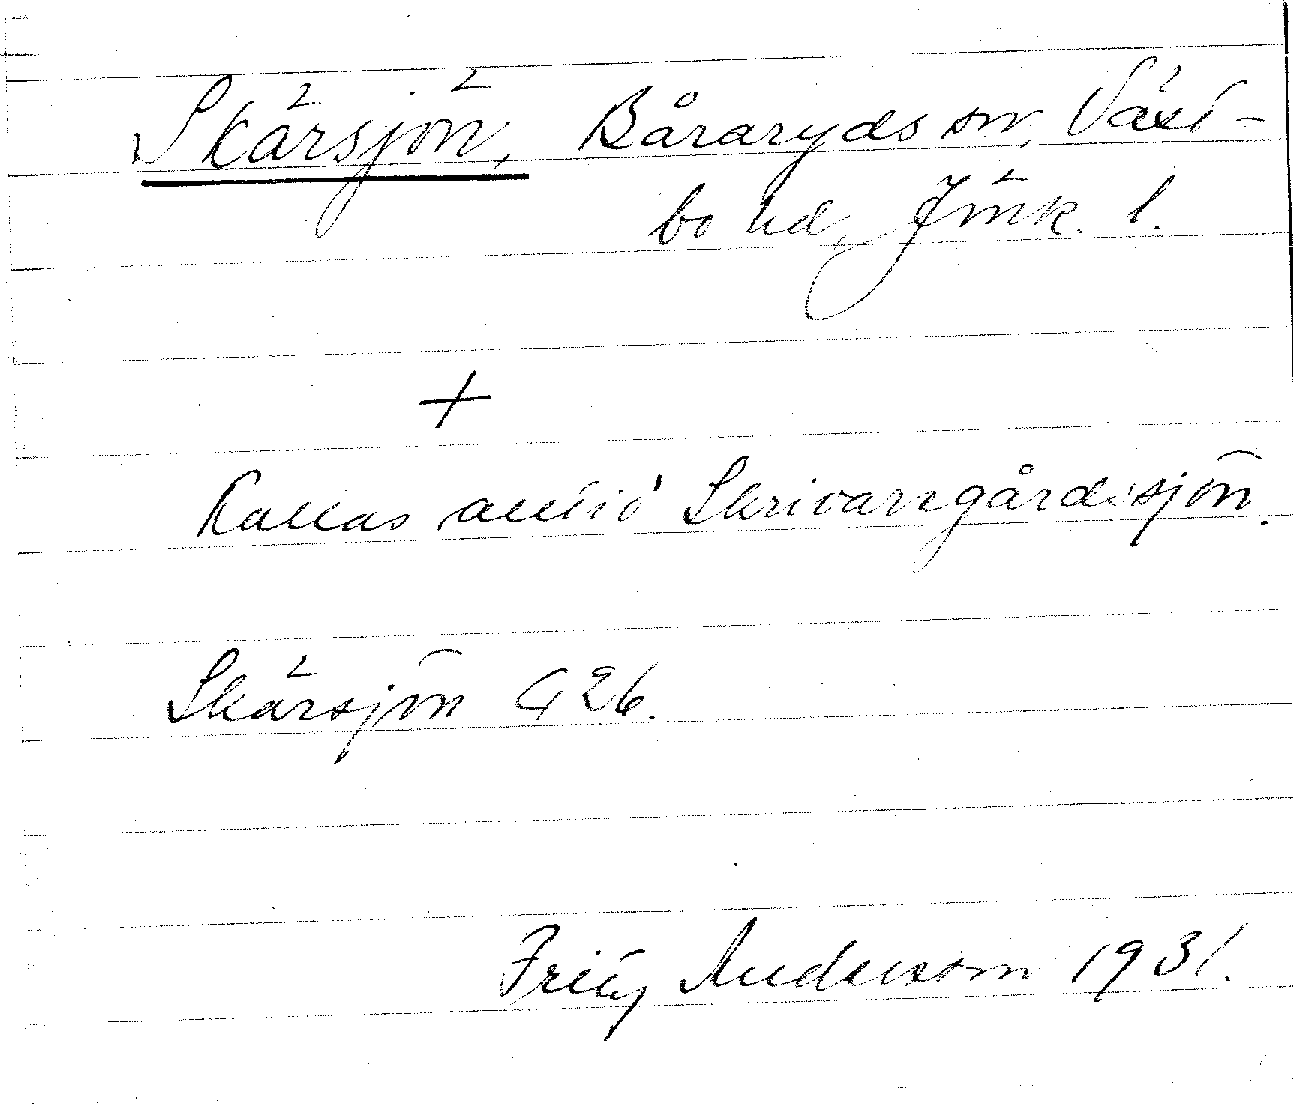 Skärsjön, Båraryds sn, Väst-
bo hd, Jönk. l.
+
Kallas alltid Skrivaregårdssjön.
Skärsjön G 26.
Fritz Andersson 1931.